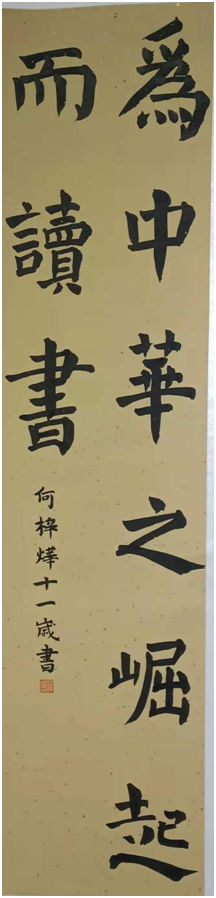 為中華之崛起
而讀書
何梓燁十一歲書